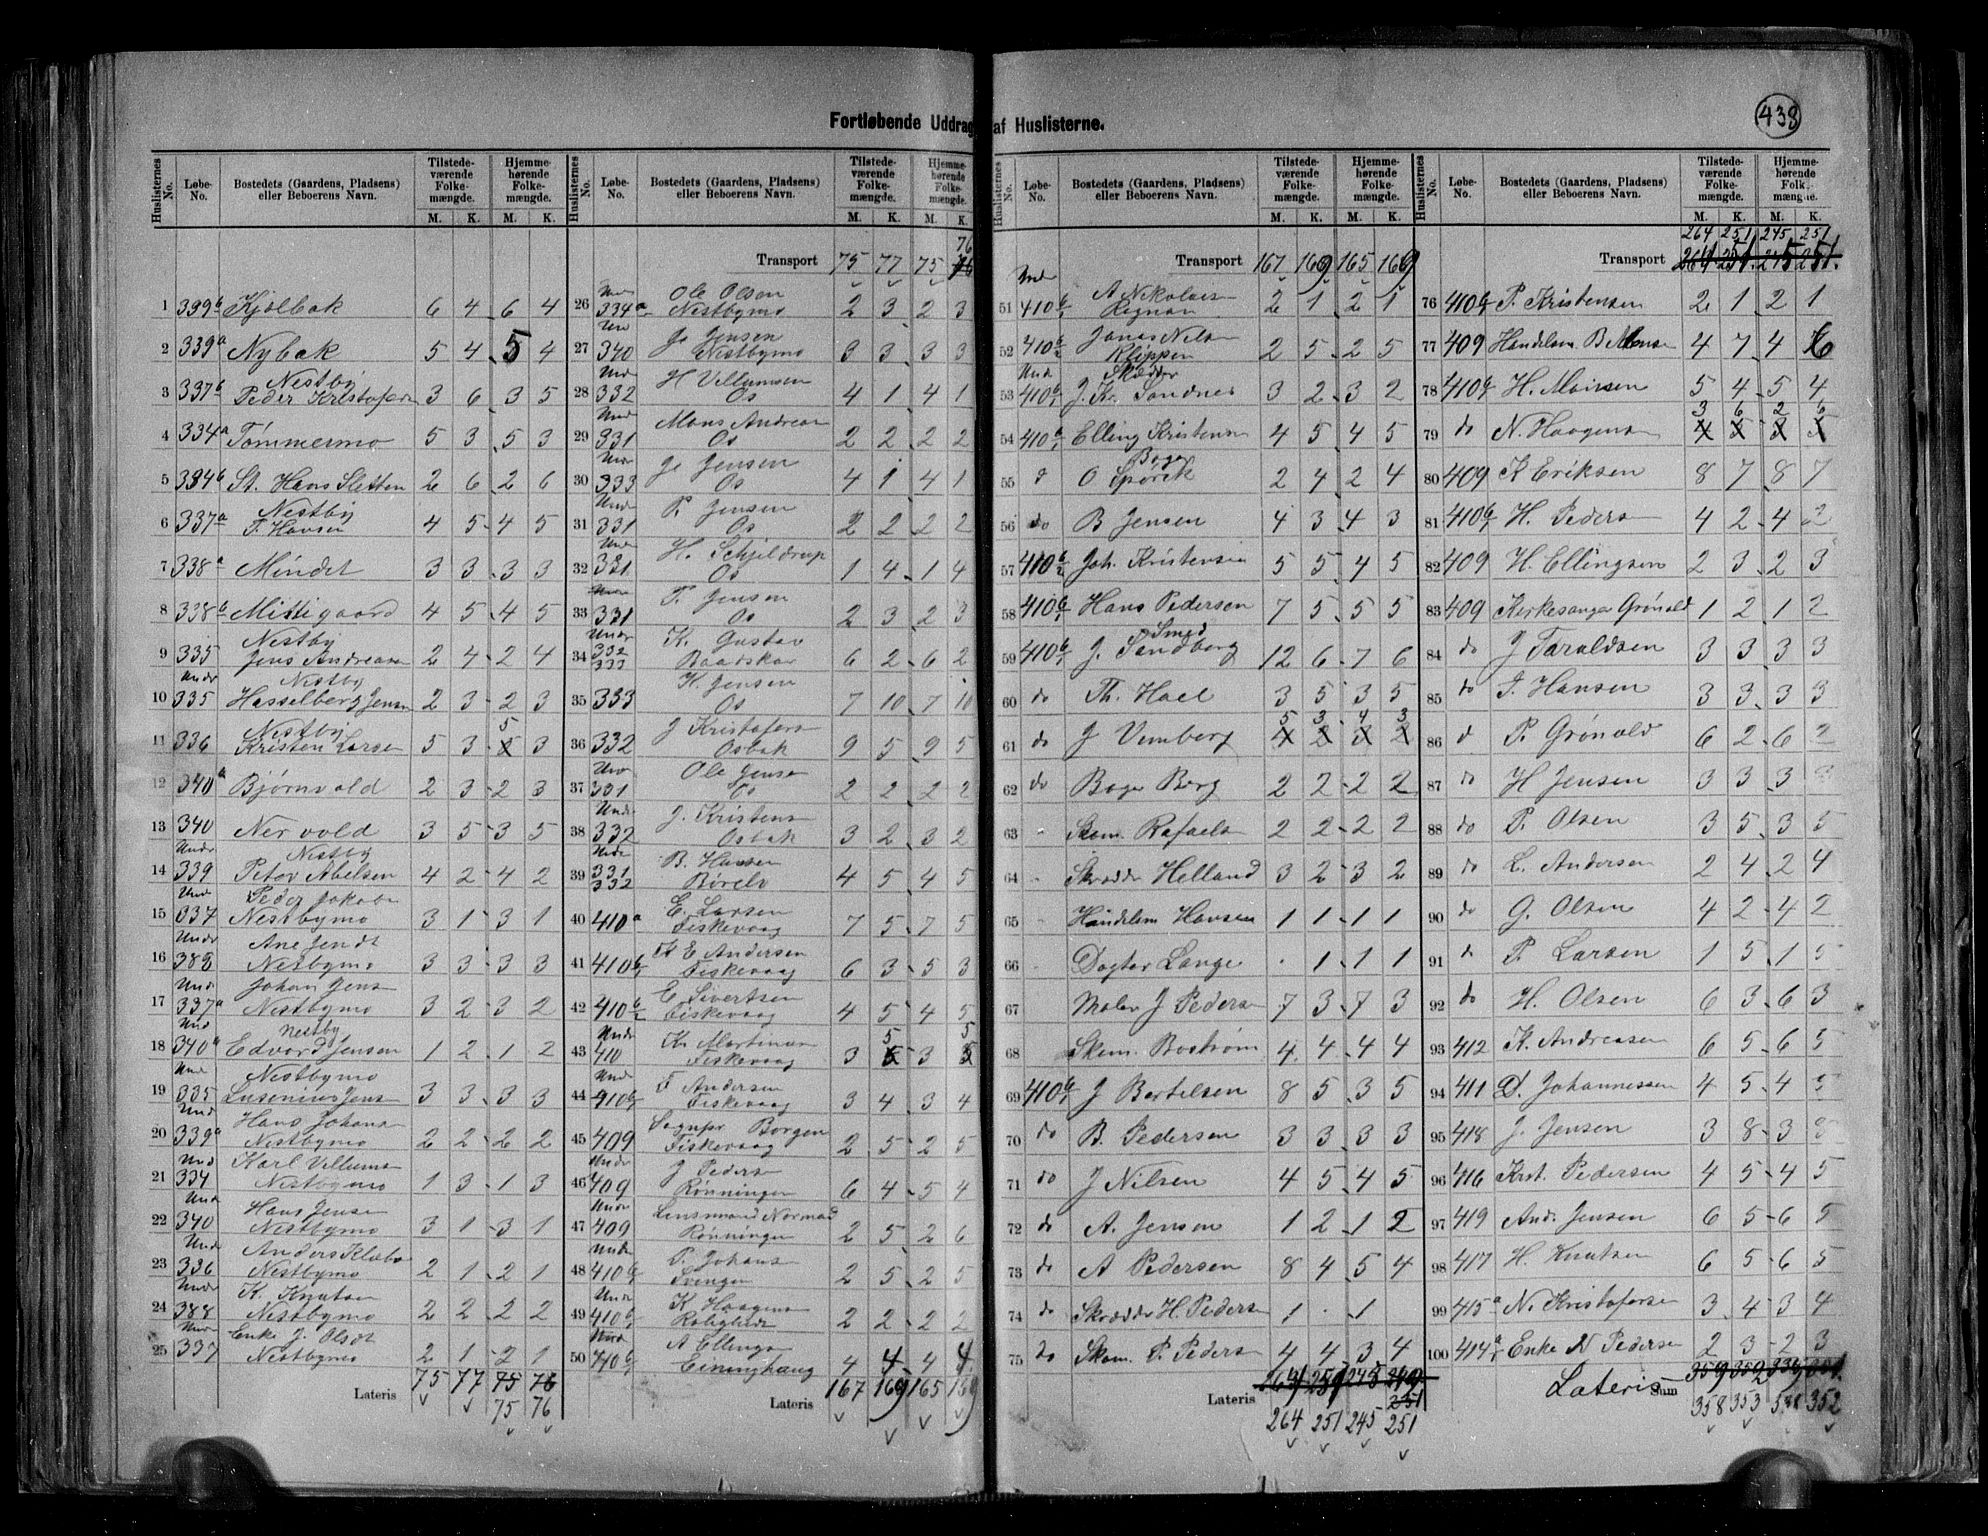 438
Fortløbende Uddrag af Huslisterne.
Huslisternes No. Løbe-No. Bostedets (Gaardens, Pladsens) eller Beboerens Navn. Tilstedeværende Folkemængde. M. K. Hjemmehørende Folkemængde. M. K.
1 339b Kjølbak 6 4 6 4
2 339a Nybak 5 4 5 4
3 337b Nestby Peder Kristofers 3 6 3 5
4 334a Tømmermo 5 3 5 3
5 334b St. Hans Sletten 2 6 2 6
6 337a Nestby 4 5 4 5
7 338a Mindet 3 3 3 3
8 338b Mittigaard 4 5 4 5
9 335 Nestby Jens Andreasen 2 4 2 4
10 Undr 335 Nestby Hasselberg Jensen 2 3 2 3
11 336 Nestby Kristen Larsen 5 3 5 3
12 340a Bjørnvold 2 3 2 3
13 340 Nervold 3 5 3 5
14 Undr 339 Nestby Peter Abelsen 4 2 4 2
15 Und 337 Peder Jakobs Nestbymo 3 1 3 1
16 Undr 388 Ane Jendt Nestbymo 3 3 3 3
17 Und 337a Johan Jens Nestbymo 3 2 3 2
18 Und 340a Nestby Edvard Jensen 1 2 1 2
19 Und 335 Nestbymo Lusenius Jens 3 3 3 3
20 Und 339a Hans Johans Nestbymo 2 2 2 2
21 Und 334 Karl Villums Nestbymo 1 3 1 3
22 Und 340 Hans Jensen Nestbymo 3 1 3 1
23 Und 336 Anders Klæbo Nestbymo 2 1 2 1
24 Undr 388 K. Knutsen Nestbymo 2 2 2 2
25 Und 337 Enke J. Olsdt Nestbymo 2 1 2 1
75 77 75 76
75 76
Huslisternes No. Løbe-No. Bostedets (Gaardens, Pladsens) eller Beboerens Navn. Tilstedeværende Folkemængde. M. K. Hjemmehørende Folkemængde. M. K.
Transport 75 77 75 76
26 Und 334a Ole Olsen Nestbymo 2 3 2 3
27 Und 340 Jensen Nestbymo 3 3 3 3
28 Und 332 H Villumsen Os 4 1 4 1
29 Und 331 Mons Andreas Os 2 2 2 2
30 Und 333 Jensen Os 4 1 4 1
31 Und 331 P. Jensen Os 2 2 2 2
32 Und 321 H. Schjeldrup Os 1 4 1 4
33 331 P. Jensen Os 2 3 2 3
34 Undr 332 333 K. Gustav Baadskar 6 2 6 2
35 333 K. Jensen Os 7 10 7 10
36 332 J Kristofers Osbak 9 5 9 5
37 Und 331 Ole Jense Os 2 2 2 2
38 Und 332 J. Kristens Osbak 3 2 3 2
39 Undr 331 332 B. Hansen Børelv 4 5 4 5
40 410a E. Larsen Fiskevaag 7 5 7 5
41 410b E Andersen Fiskevaag 6 3 5 3
42 410b E Sivertsen Fiskevaag 4 5 4 5
43 Undr 410 K. Martinus Fiskevaag 3 5 3 5
44 Und 410b F Andersen Fiskevaag 3 4 3 4
45 409 Sognepr Borgen Fiskevaag 2 5 2 5
46 Undr 409 J Peders Rønningen 6 4 5 4
47 Undr 409 Lensmand Normad Rønningen 2 5 2 6
48 Und 410b P. Johans Svengen 2 5 2 5
49 Und 410b K Haagens Roligheds 2 2 2 2
50 Und 410b A Ellings Einmghaug 4 4 4 4
Lateris 167 169 165 169
Huslisternes No. Løbe-No. Bostedets (Gaardens, Pladsens) eller Beboerens Navn. Tilstedeværende Folkemængde. M. K. Hjemmehørende Folkemængde. M. K.
Transport 167 169 165 169
51 Und 410b A Nikolais 2 1 2 1
52 410b Jonas Nils Klippen 2 5 2 5
53 Und 410b Skræder J. Kr. Sandnes 3 2 3 2
54 410b Elling Kristens 4 5 4 5
55 O Spørck 2 4 2 4
56 do B Jensen 4 3 4 3
57 410b Joh. Kristensen 5 5 4 5
58 410b Hans Pedersen 7 5 5 5
59 410b J. Sandberg Smed 12 6 7 6
60 do Th. Hael 3 5 3 5
61 do J Vemberg 5 3 4 3
62 do Boge Berg 2 2 2 2
63 Skom. Rafaels 2 2 2 2
64 Skrædder Helland 3 2 3 2
65 Handelsm Hansen 1 1 1 1
66 Dogter Lange . 1 1 1
67 Maler J Peders 7 3 7 3
68 Skom. Bostrøm 4 4 4 4
69 410b J Bertelsen 8 5 3 5
70 do B. Pedersen 3 3 3 3
71 do J Nilsen 4 5 4 5
72 do A. Jensen 1 2 1 2
73 do A Pedersen 8 4 5 4
74 do Skrædder H. Peders 1 . 1
75 do Skom. P. Peders 4 4 3 4
Lateris 251
264 251 245 251
Huslisternes No. Løbe-No. Bostedets (Gaardens, Pladsens) eller Beboerens Navn. Tilstedeværende Folkemængde. M. K. Hjemmehørende Folk. mængde. M. K.
264 251 245 251
Transport
76 410b P. Kristensen 2 1 2 1
77 409 Handelsm B Mons 4 7 4 6
78 410b H. Monsen 5 4 5 4
79 do N. Haagens 3 6 2 6
80 409 K Eriksen 8 7 8 7
81 410b H. Peders 4 2 4 2
82 409 H. Ellingsen 2 3 2 3
83 409 Kirkesanger Grønold 1 2 1 2
84 do J Taraldsen 3 3 3 3
85 do Hansen 3 3 3 3
86 d P. Grønold 6 2 6 2
87 do H Jensen 3 3 3 3
88 do P. Olsen 3 5 3 5
89 do L. Andersen 2 4 2 4
90 do G. Olsen 4 2 4 2
91 d P. Larsen 1 5 1 5
92 do H. Olsen 6 3 6 3
93 412 K. Andreasen 6 5 6 5
94 411 D. Johannessen 4 5 4 5
95 418 J. Jensen 3 8 3 8
96 416 Krist. Pedersen 4 5 4 5
97 419 And. Jensen 6 5 6 5
98 417 H. Knutsen 6 5 6 5
99 415a N. Kristoferse 3 4 3 4
100 414a Enke N Pedersen 2 3 2 3
Lateris Sum
358 353 338 352